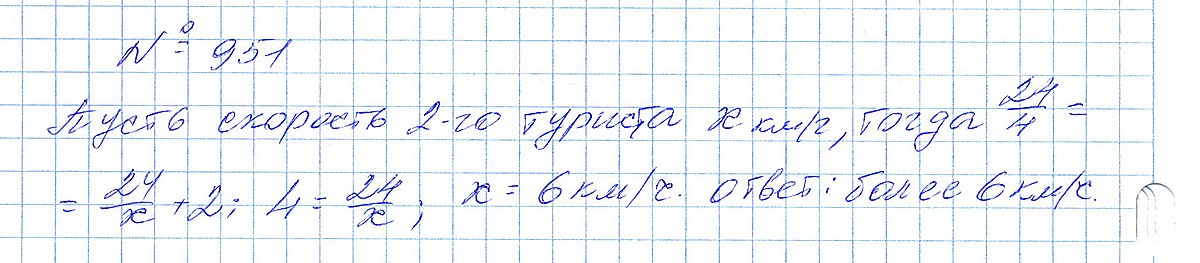 № 951
Пусть скорость 2-го туриста x км/ч, тогда 24/4 =
= 24/x + 2; 4 = 24/x; x = 6 км/ч. ответ: более 6 км/ч.